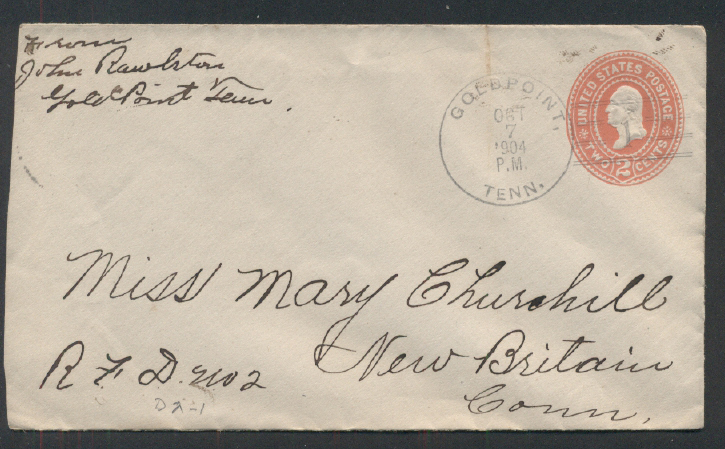 From
John Rawlston
Gold Point Tenn.
GOLDPOINT,
OCT
7
1904
P.M.
TENN.
UNITED STATES POSTAGE
TWO 2 CENTS
Miss Mary Churchill
New Britain
R F D. No 2
Conn.